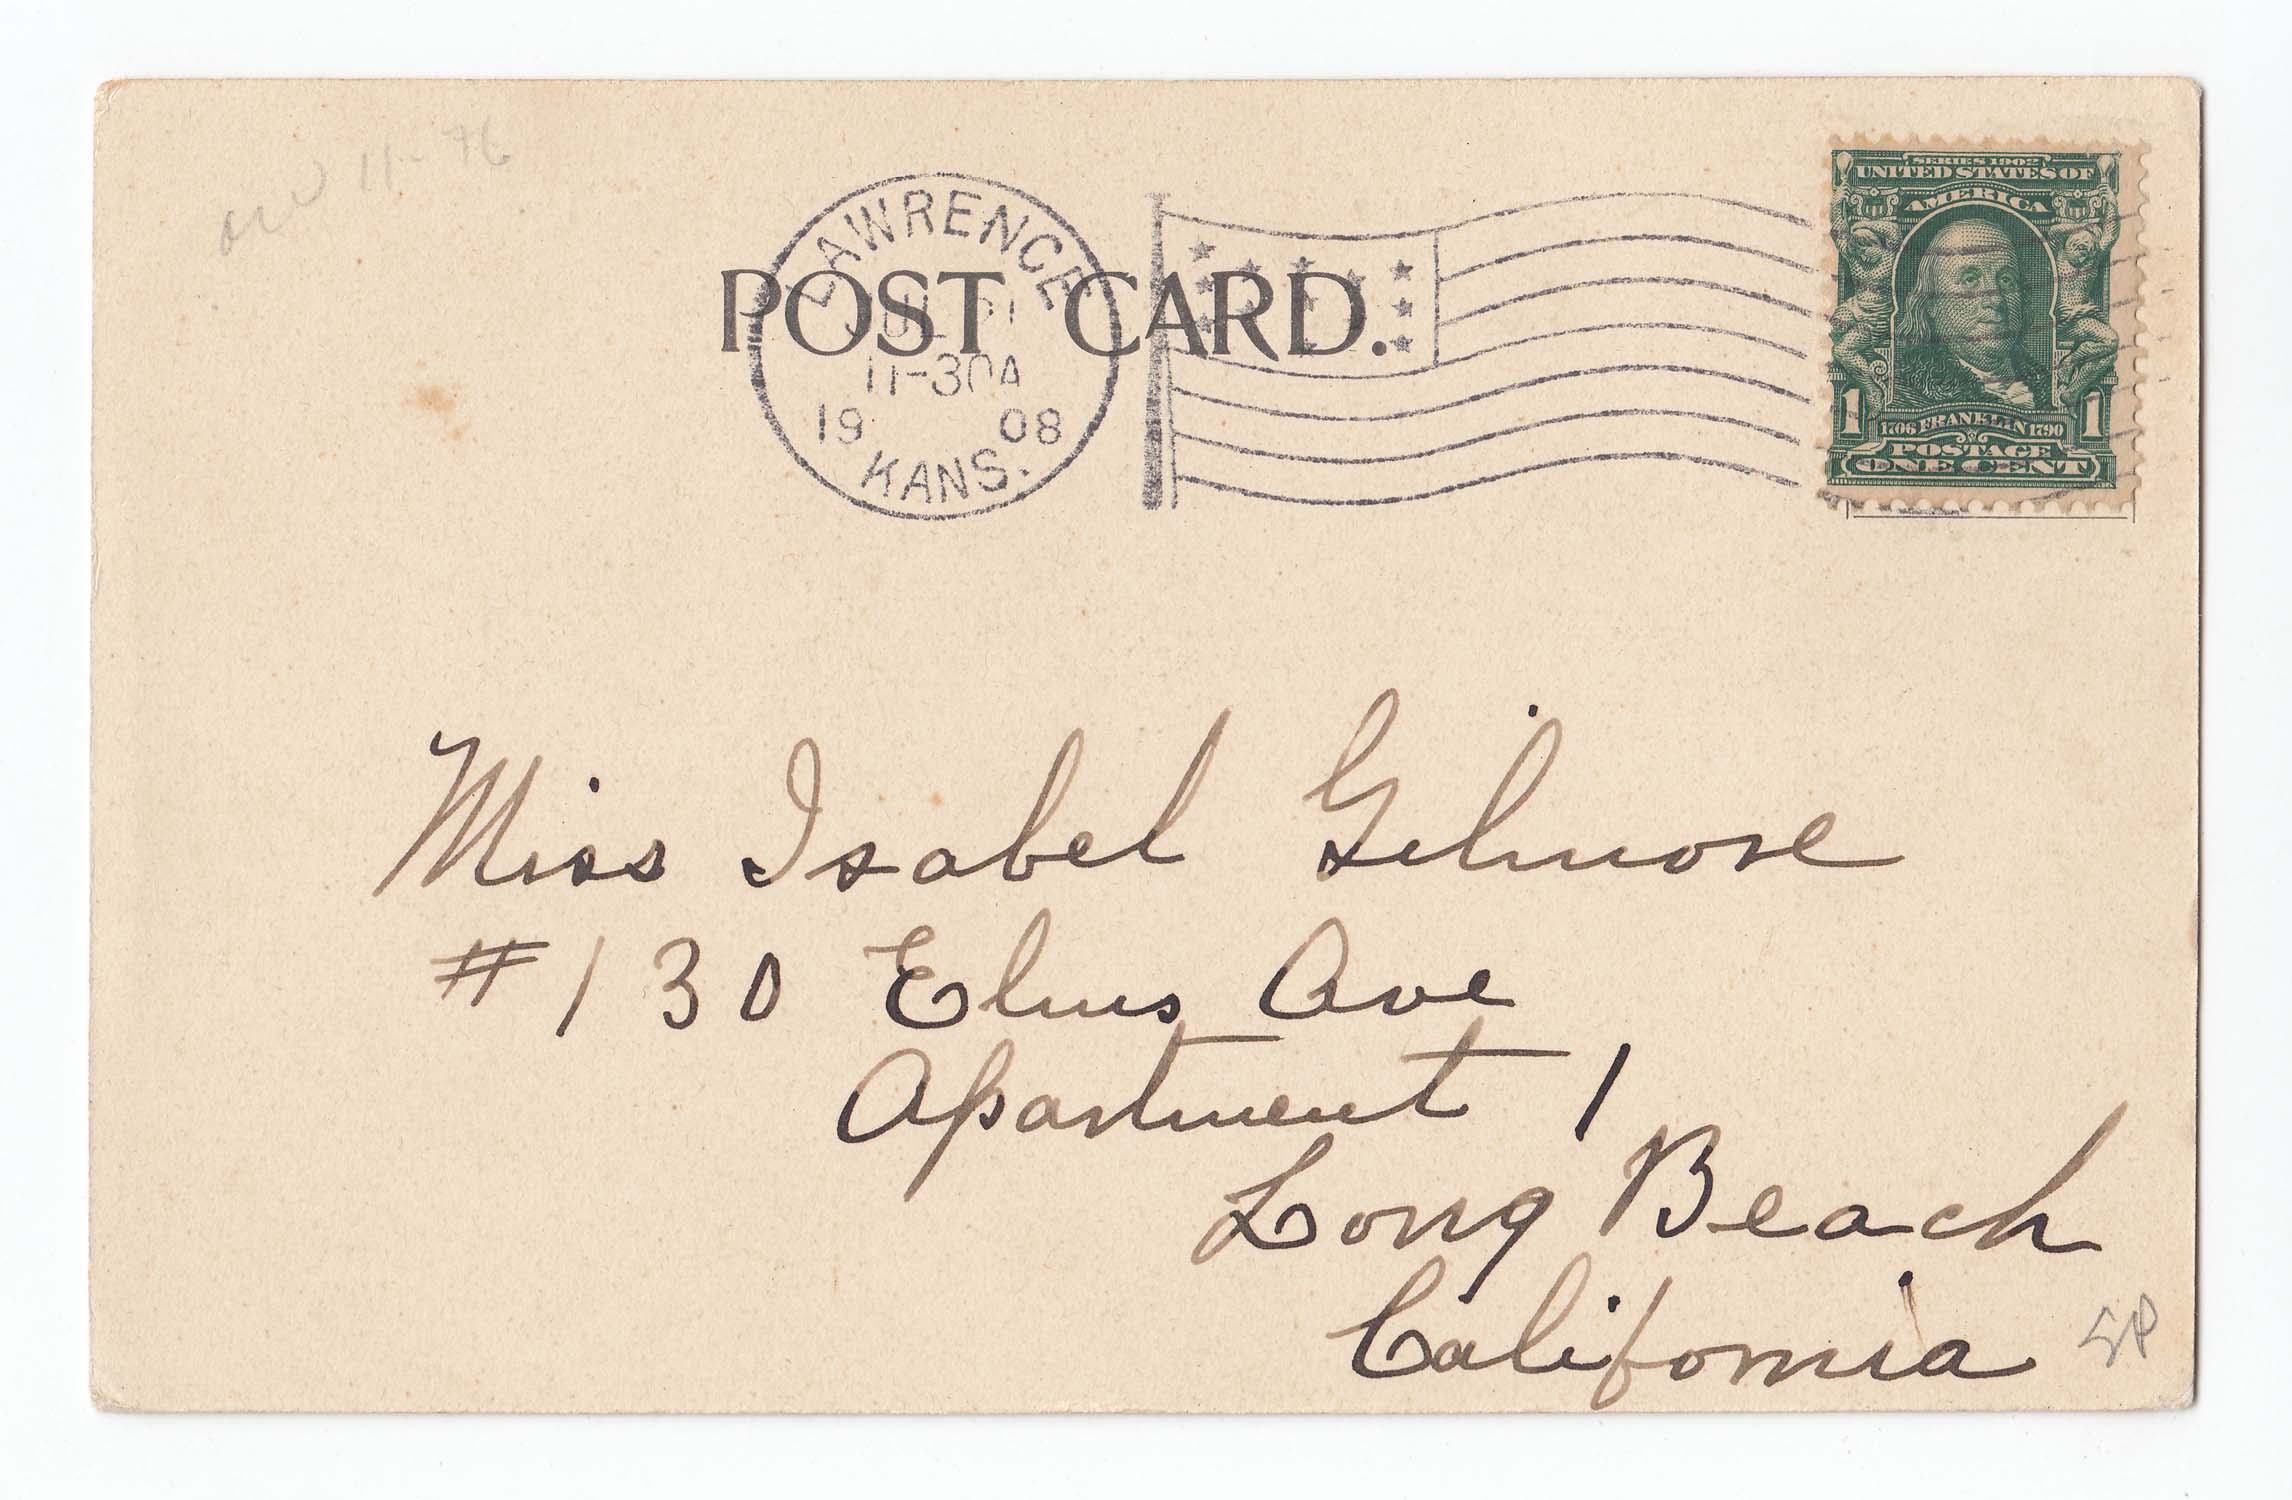 11-76
LAWRENCE
POST CARD.
11-30A
19 08
KANS.
SERIES 1902
UNITED STATES OF
AMERICA
1 1706 FRANKLIN 1790 1
POSTAGE
ONE CENT
Miss Isabel Gilmore
#130 Elms Ave
Apartment 1
Long Beach
California